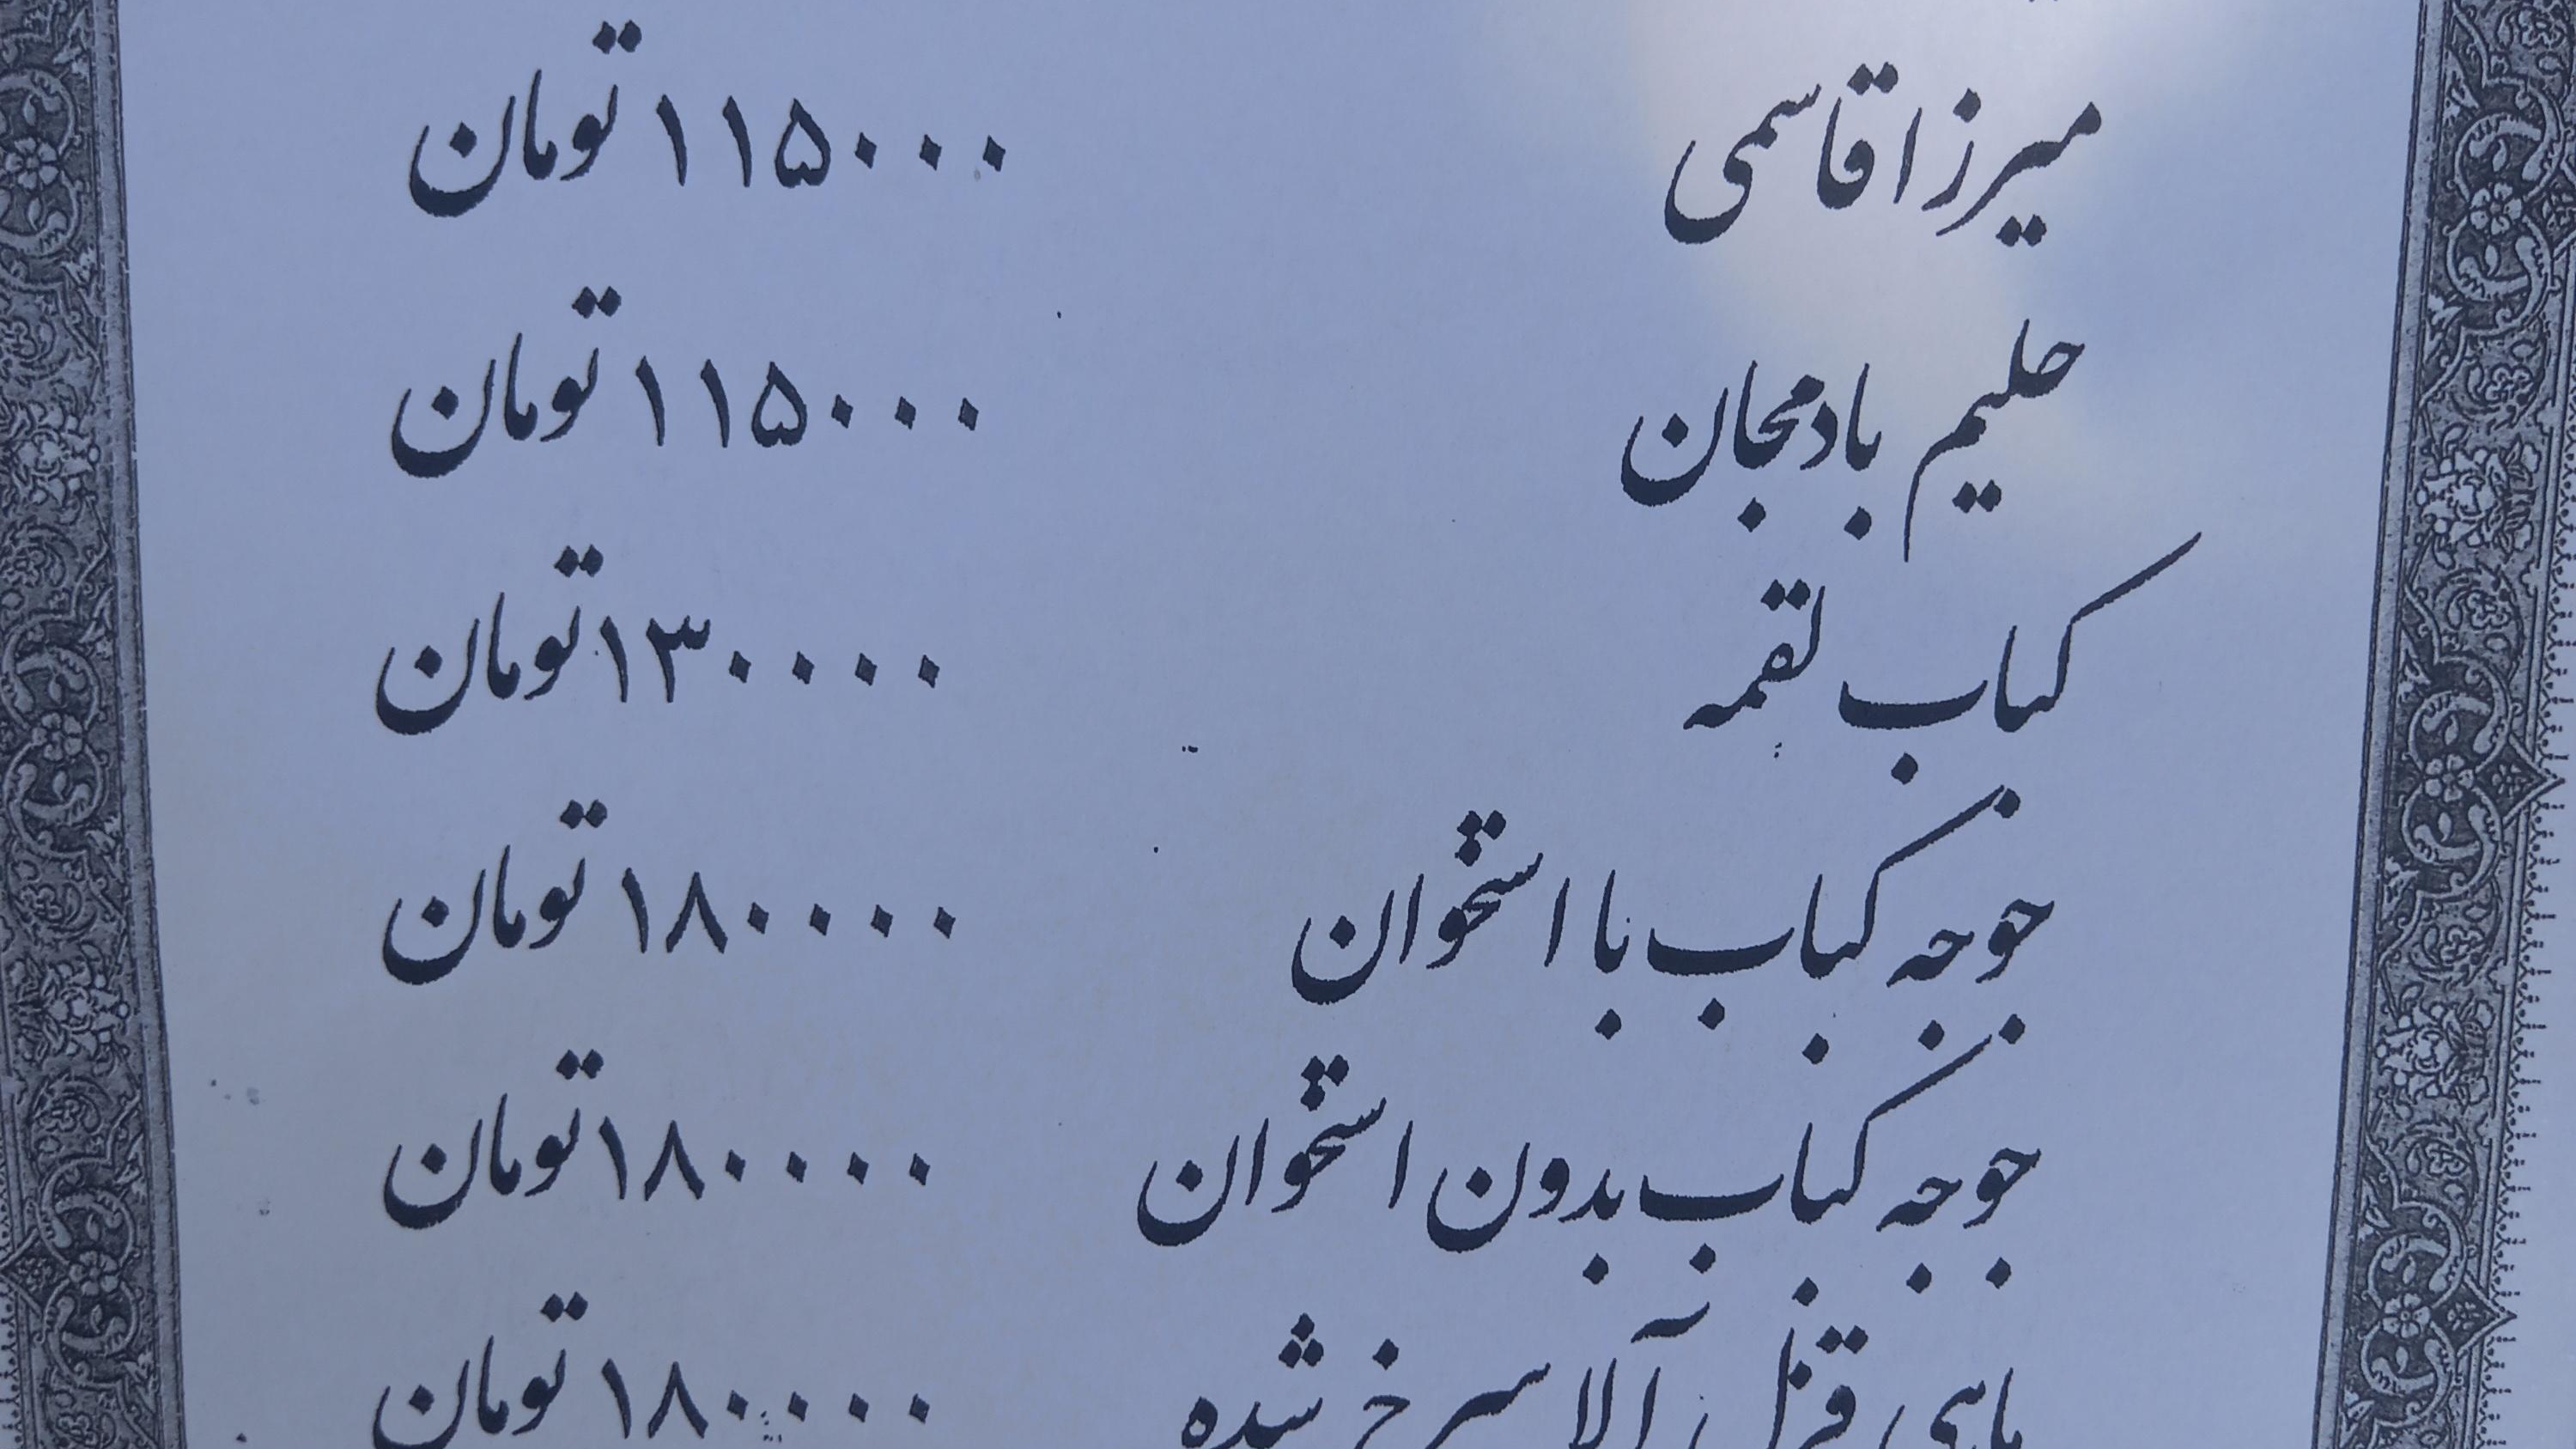 میرزا قاسمی ۱۱۵۰۰۰ تومان
حلیم بادمجان ۱۱۵۰۰۰ تومان
کباب لقمه ۱۳۰۰۰۰ تومان
جوجه کباب با استخوان ۱۸۰۰۰۰ تومان
جوجه کباب بدون استخوان ۱۸۰۰۰۰ تومان
ماهی قزل آلا سرخ شده ۱۸۰۰۰۰ تومان